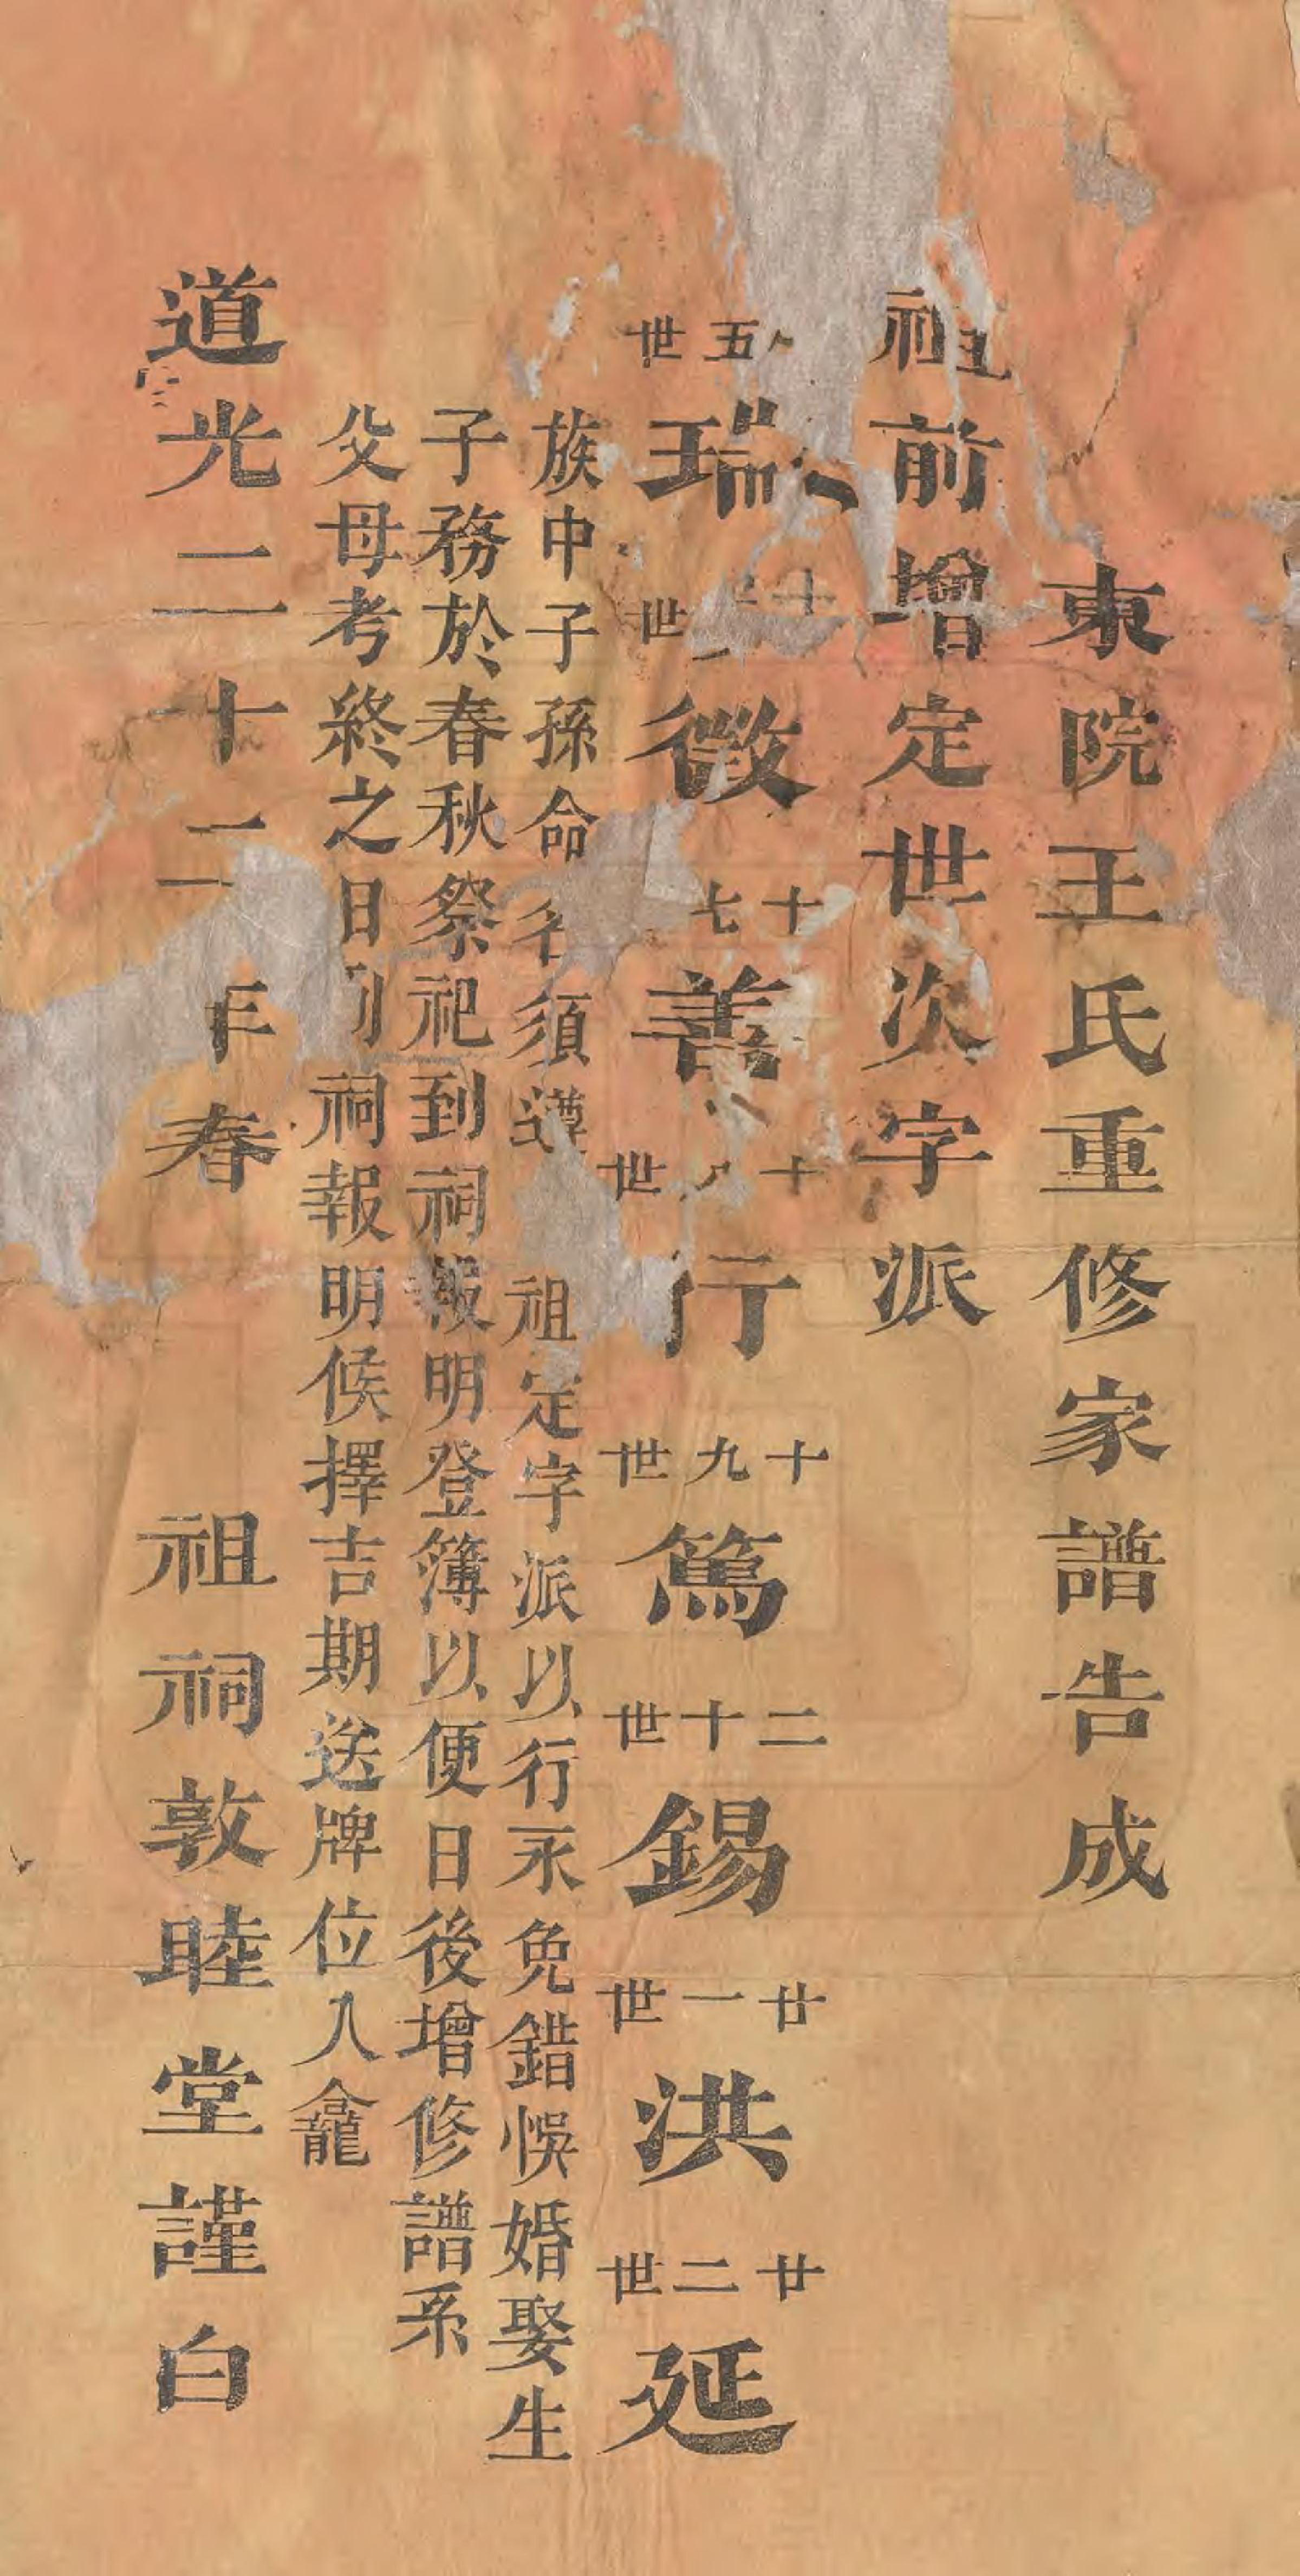 東院王氏重修家譜告成
祖前增定世次字派
五世瑞 十世徵 十七善 十世行 十九世篤 二十世錫 廿一世洪 廿二世延
族中子孫命名須遵 祖定字派以行永免錯悞婚娶生
子務於春秋祭祀到祠報明登簿以便日後增修譜系
父母考終之日到祠報明候擇吉期送牌位入龕
道光二十二年春 祖祠敦睦堂謹白